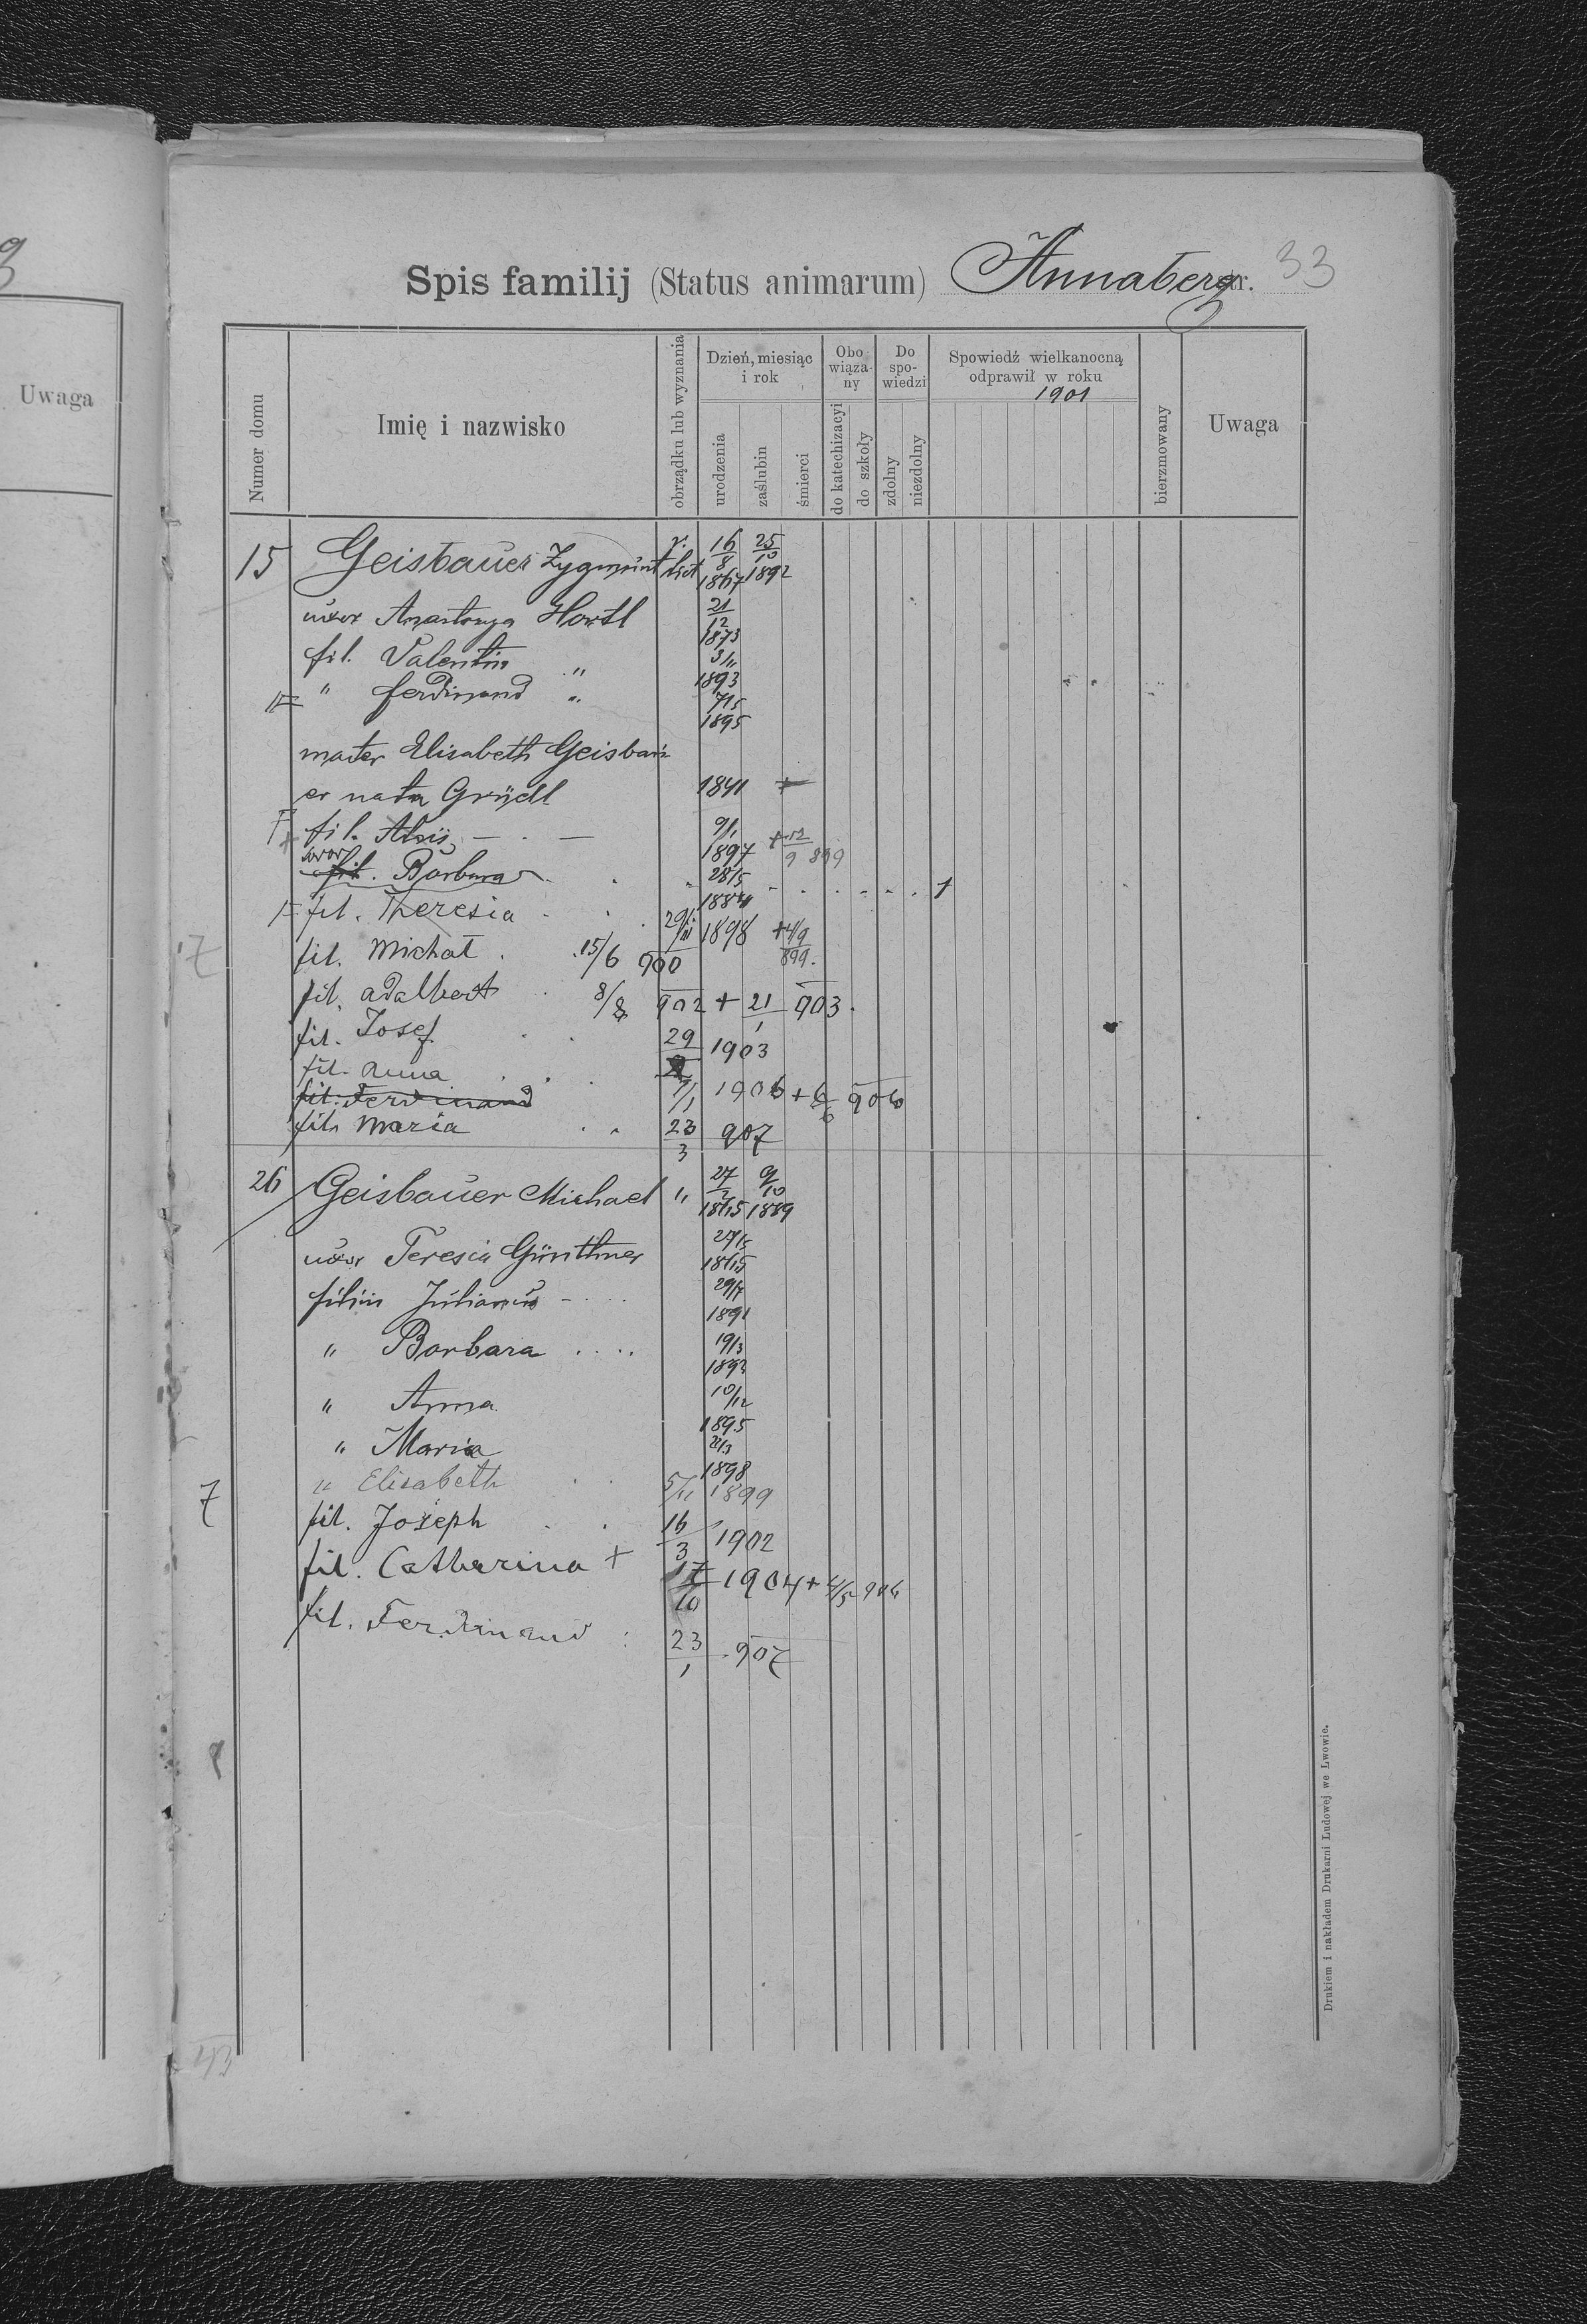 3
Uwaga
Spis familij (Status animarum) Annaberg str. 33
Numer domu
Imię i nazwisko
obrządku lub wyznania
Dzień, miesiąc i rok
urodzenia
zaślubin
śmierci
Obowiąza-ny
do katechizacyi
do szkoły
Do spo-wiedzi
zdolny
niezdolny
Spowiedź wielkanocną odprawił w roku
1901
bierzmowany
Uwaga
15 Geisbauer Zygmunt r. lat 16/8 1867 25/10 1892
uxor Anastazya Hortl 21/12 1873
fil. Valentin " 3/11 1893
" Ferdinand " 7/5 1895
mater Elisabeth Geisbau
er nata Gründl 1841 +
fil. Alois 9/1 1897 + 12/9 899
soror fil. Barbara " 28/5 1884 1
fil. Theresia 1898 + 4/9 899.
fil. Michał 15/6 900
fil. Adalbert 8/8 902 + 21/1 903.
fil. Josef 29 1903
fil. Anna
fil. Ferdinand 7/1 1906 + 6/6 906
fil. Maria 23/3 907
26 Geisbauer Michael " 27/2 1865 9/10 1889
uxor Teresia Günthner 27/5 1865
filia Juliana 29/7 1891
" Barbara 19/3 1893
" Anna 10/12 1895
" Maria 1898
" Elisabeth 5/11 1899
7
fil. Joseph 16/3 1902
fil. Catharina + 17/10 1904 + 4/5 906
fil. Ferdinand 23/1 907
Drukiem i nakładem Drukarni Ludowej we Lwowie.